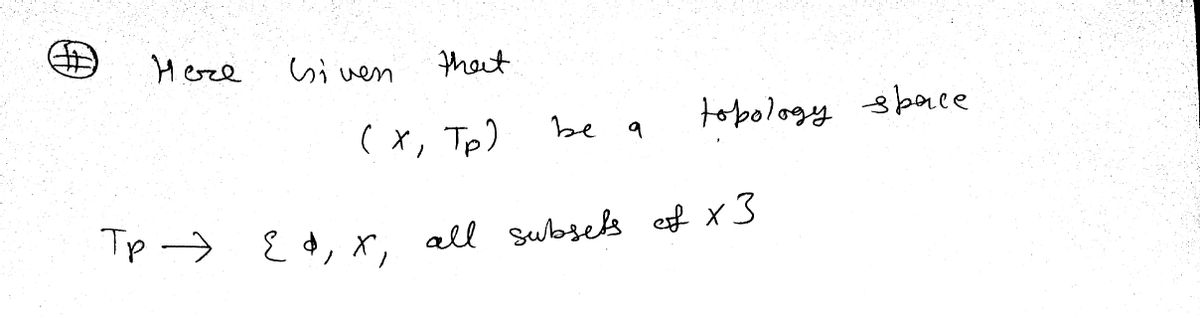 # Here Given that
(X, Tp) be a topology space
Tp → { ϕ, X, all subsets of X }